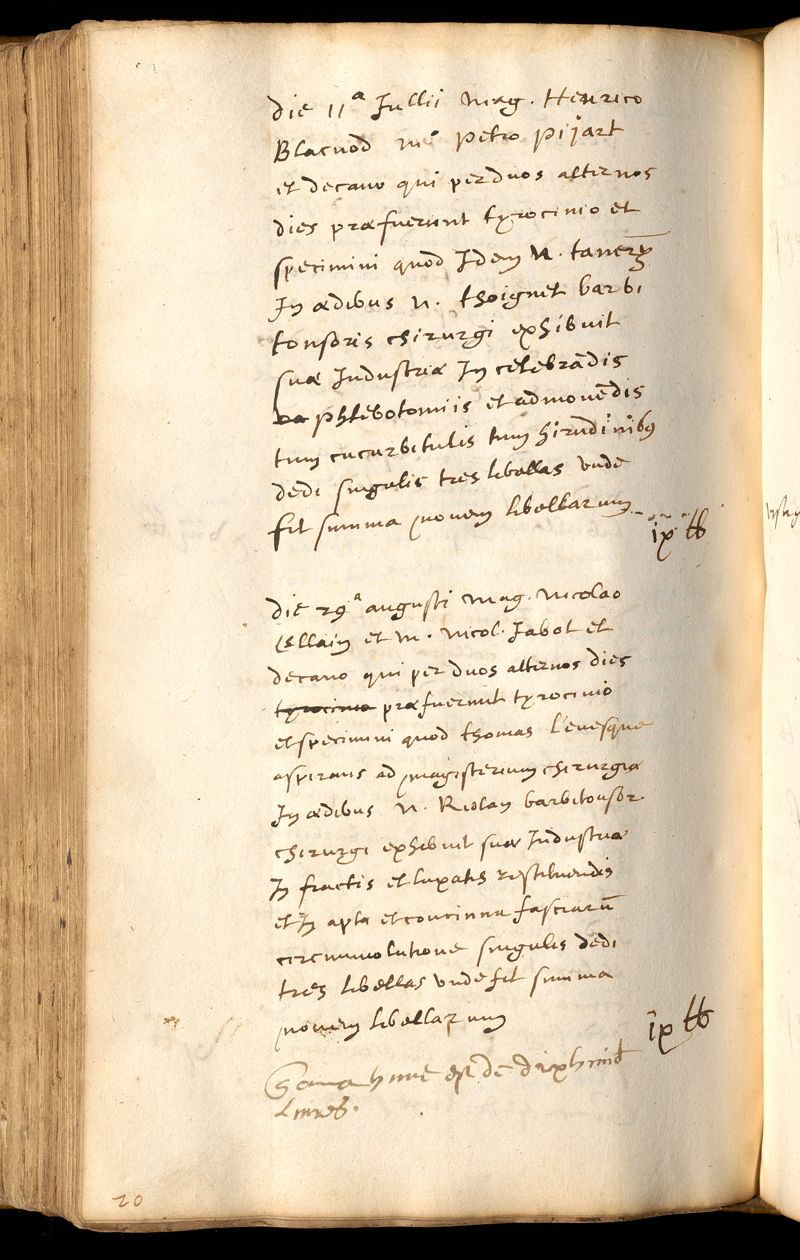 die 11ª Jullii mag. Henrico
Blacuod me° petro pijart
et decano qui per duos alternos
dies præfuerunt tyrocinio et
specimini quod Idem N.
In ædibus N. thoignet barbi
tonsoris chirurgi exhibuit
suæ Industriæ In celebrādis
phlebotomiis et admouēdis
tum cucurbitulis tum hirudinibus
dedi singulis tres libellas unde
fit summa novem libellarum
ix ℔
die 29ª augusti mag. Nicolao
Ellain et M. Nicol. Jabot et
decano qui per duos alternos dies
tyrocinio præfuerunt tyrocinio
et specimini quod thomas l'euesque
aspirans ad magisterium chirurgiæ
In ædibus N. Riolan barbitonsor
chirurgi exhibuit suæ Industriæ
In fractis et luxatis restituendis
et In apta et concinna fasciarū
circumuolutione singulis dedi
tres libellas unde fit summa
novem libellarum
ix ℔
huius est de
Livres.
20